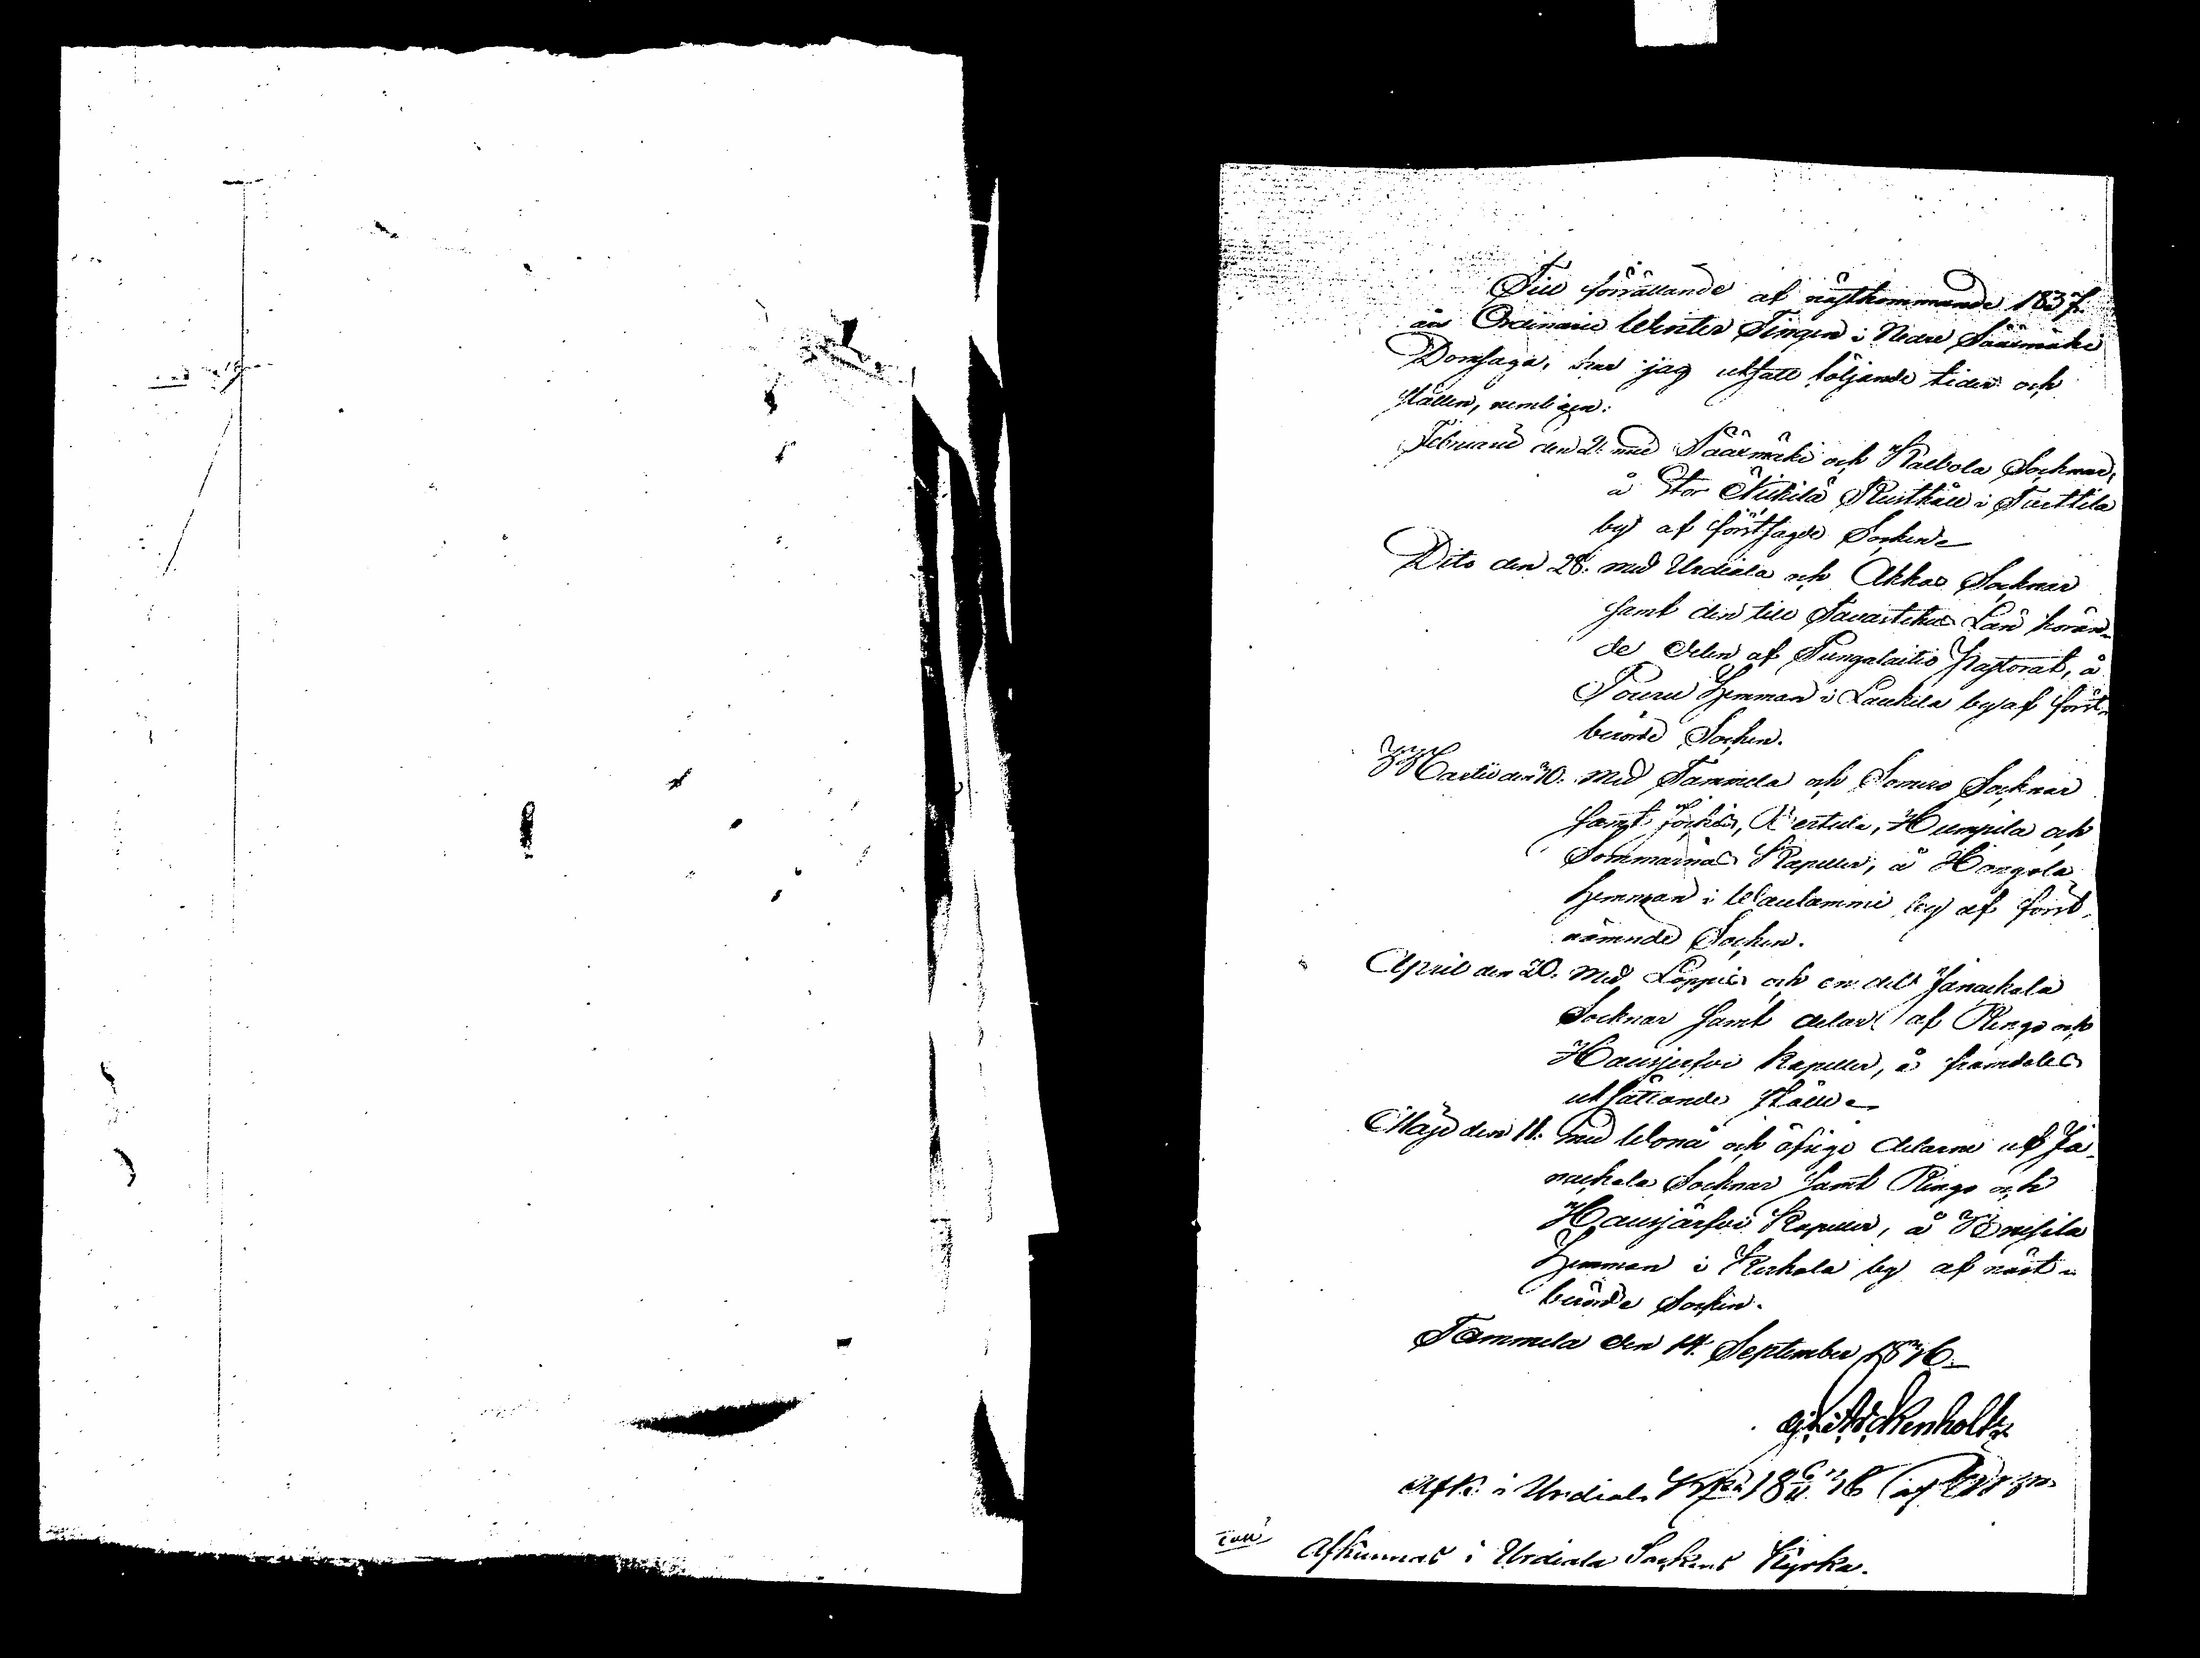 Till förrättande af nästkommande 1837.
års Ordinarie Winter Tingen i Nedre Sääxmäki
Domsaga, har jag utsatt följande tider och
ställen, nemligen:
Februarii den 2. med Sääxmäki och Kalvola Socknar,
å Stor Nikkilä Rusthåll i Tarttila
by af förstsagde Socken
Dito den 28. med Urdiala och Akkas Socknar
samt den till Tavastehus Län höran-
de delen af Pungalaitio Pastorat, å
Pouru Hemman i Laukela by af först-
berörde Socken.
Martii den 30. med Tammela och Somero Socknar
samt Jockis, Pertula, Humpila och
Sommarnäs Kapeller, å Hongola
Hemman i Kaulammi by af först-
nämnde Socken.
April den 20. med Loppis och en del Janackala
Socknar samt delar af Rengo och
Hausjerfvi Kapeller, å framdeles
utsättande ställe
Maji den 11. med Wånå och öfrige delarne af Ja-
nackala Socknar samt Rengo och
Hausjärfvi Kapeller, å
Hemman i Kerkola by af näst-
berörde Socken.
Tammela den 14. September 1836.
Arckenholtz
Afk. i Urdiala 18 36 af
Afkunnas i Urdiala Sockens Kyrka.